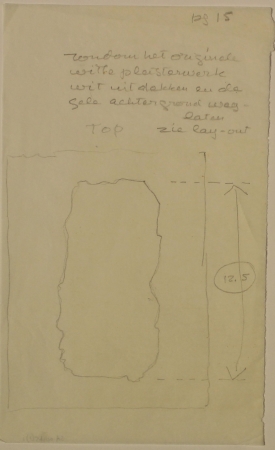 pg 15
rondom het originele
witte pleisterwerk
wit uitdekken en de
gele achtergrond weg-
laten
TOP zie lay-out
12.5